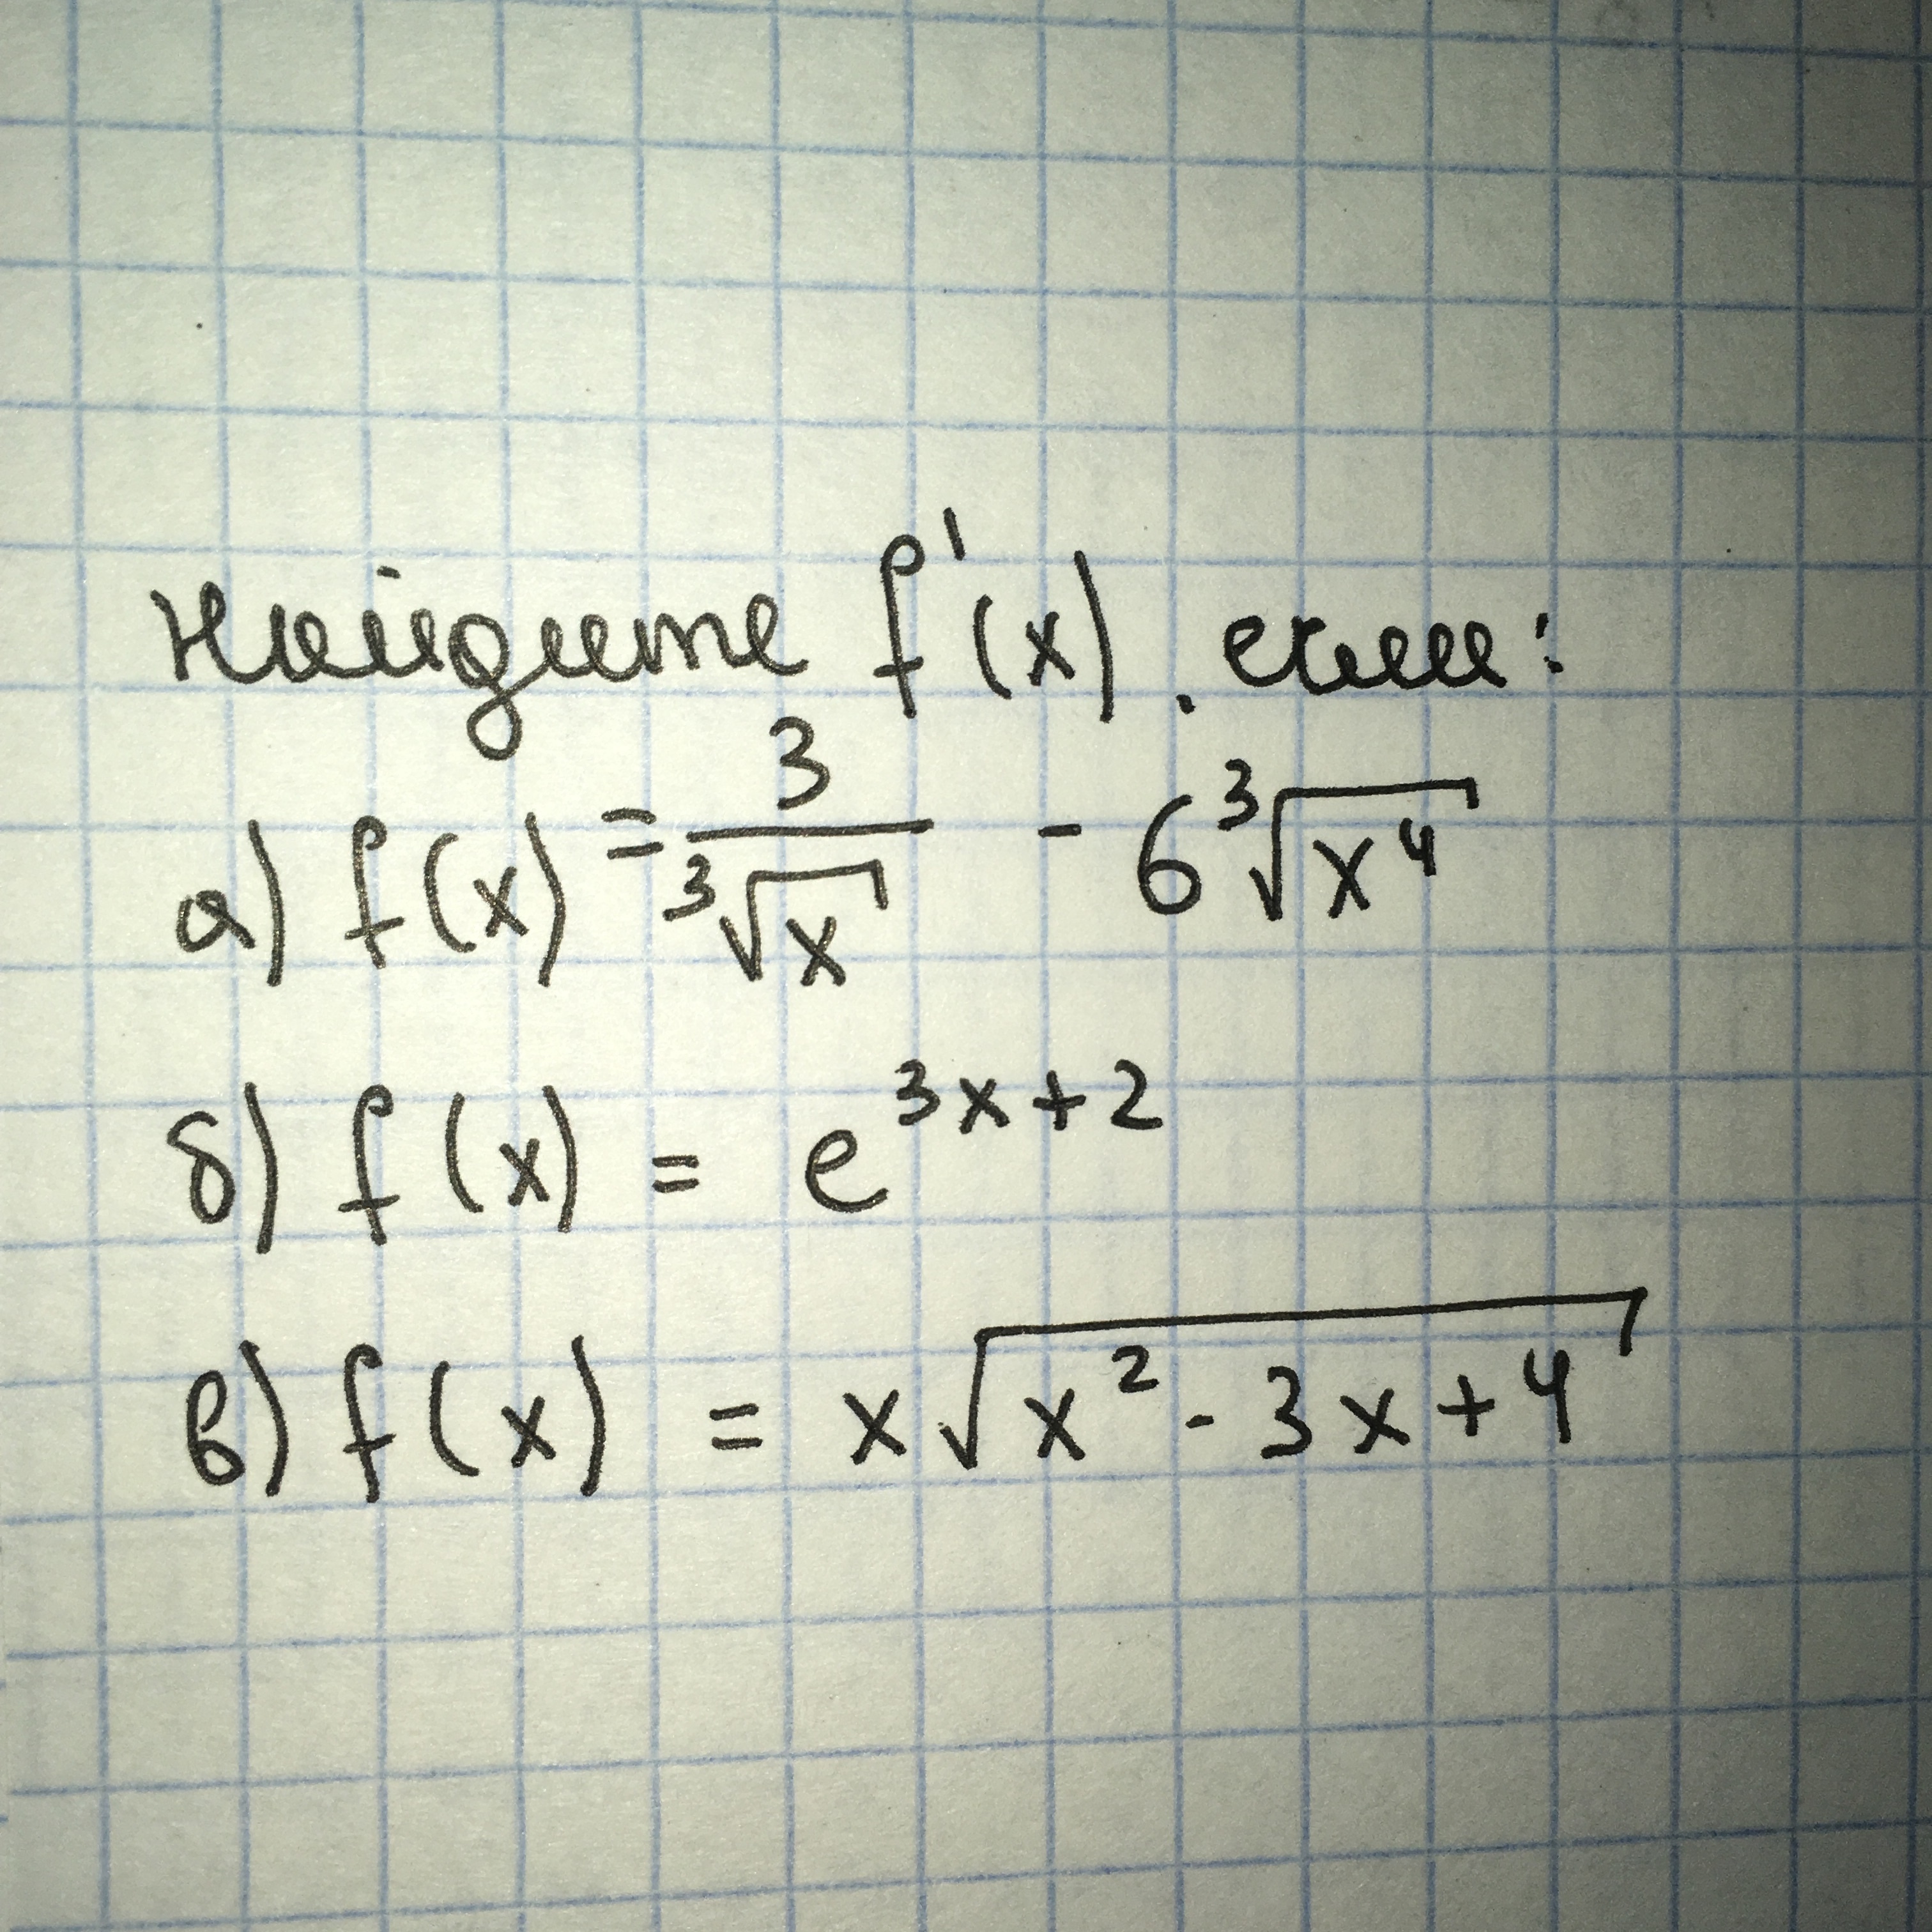 Найдите f'(x), если:
а) f(x) = 3/∛x - 6∛x⁴
б) f(x) = e^(3x+2)
в) f(x) = x√(x² - 3x + 4)